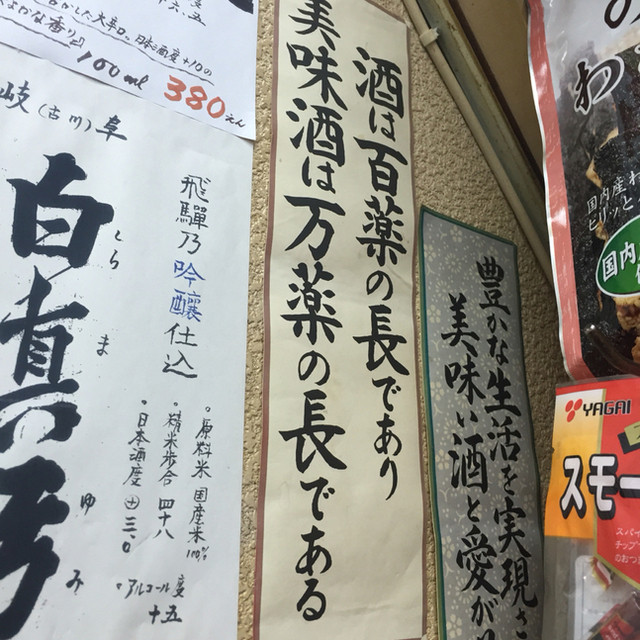 大辛口、日本酒度+10の
100ml 380えん
岐(古川)阜
白真弓
しらまゆみ
飛騨乃吟醸仕込
・原料米 国産米100%
・精米歩合 四十八
・日本酒度 ⊕三.0
・アルコール度
十五
酒は百薬の長であり
美味酒は万薬の長である
豊かな生活を実現さ
美味い酒と愛が
わ
国内産わ
ピリッと
国内
YAGAI
スモー
スパイ
チップ
のおつ